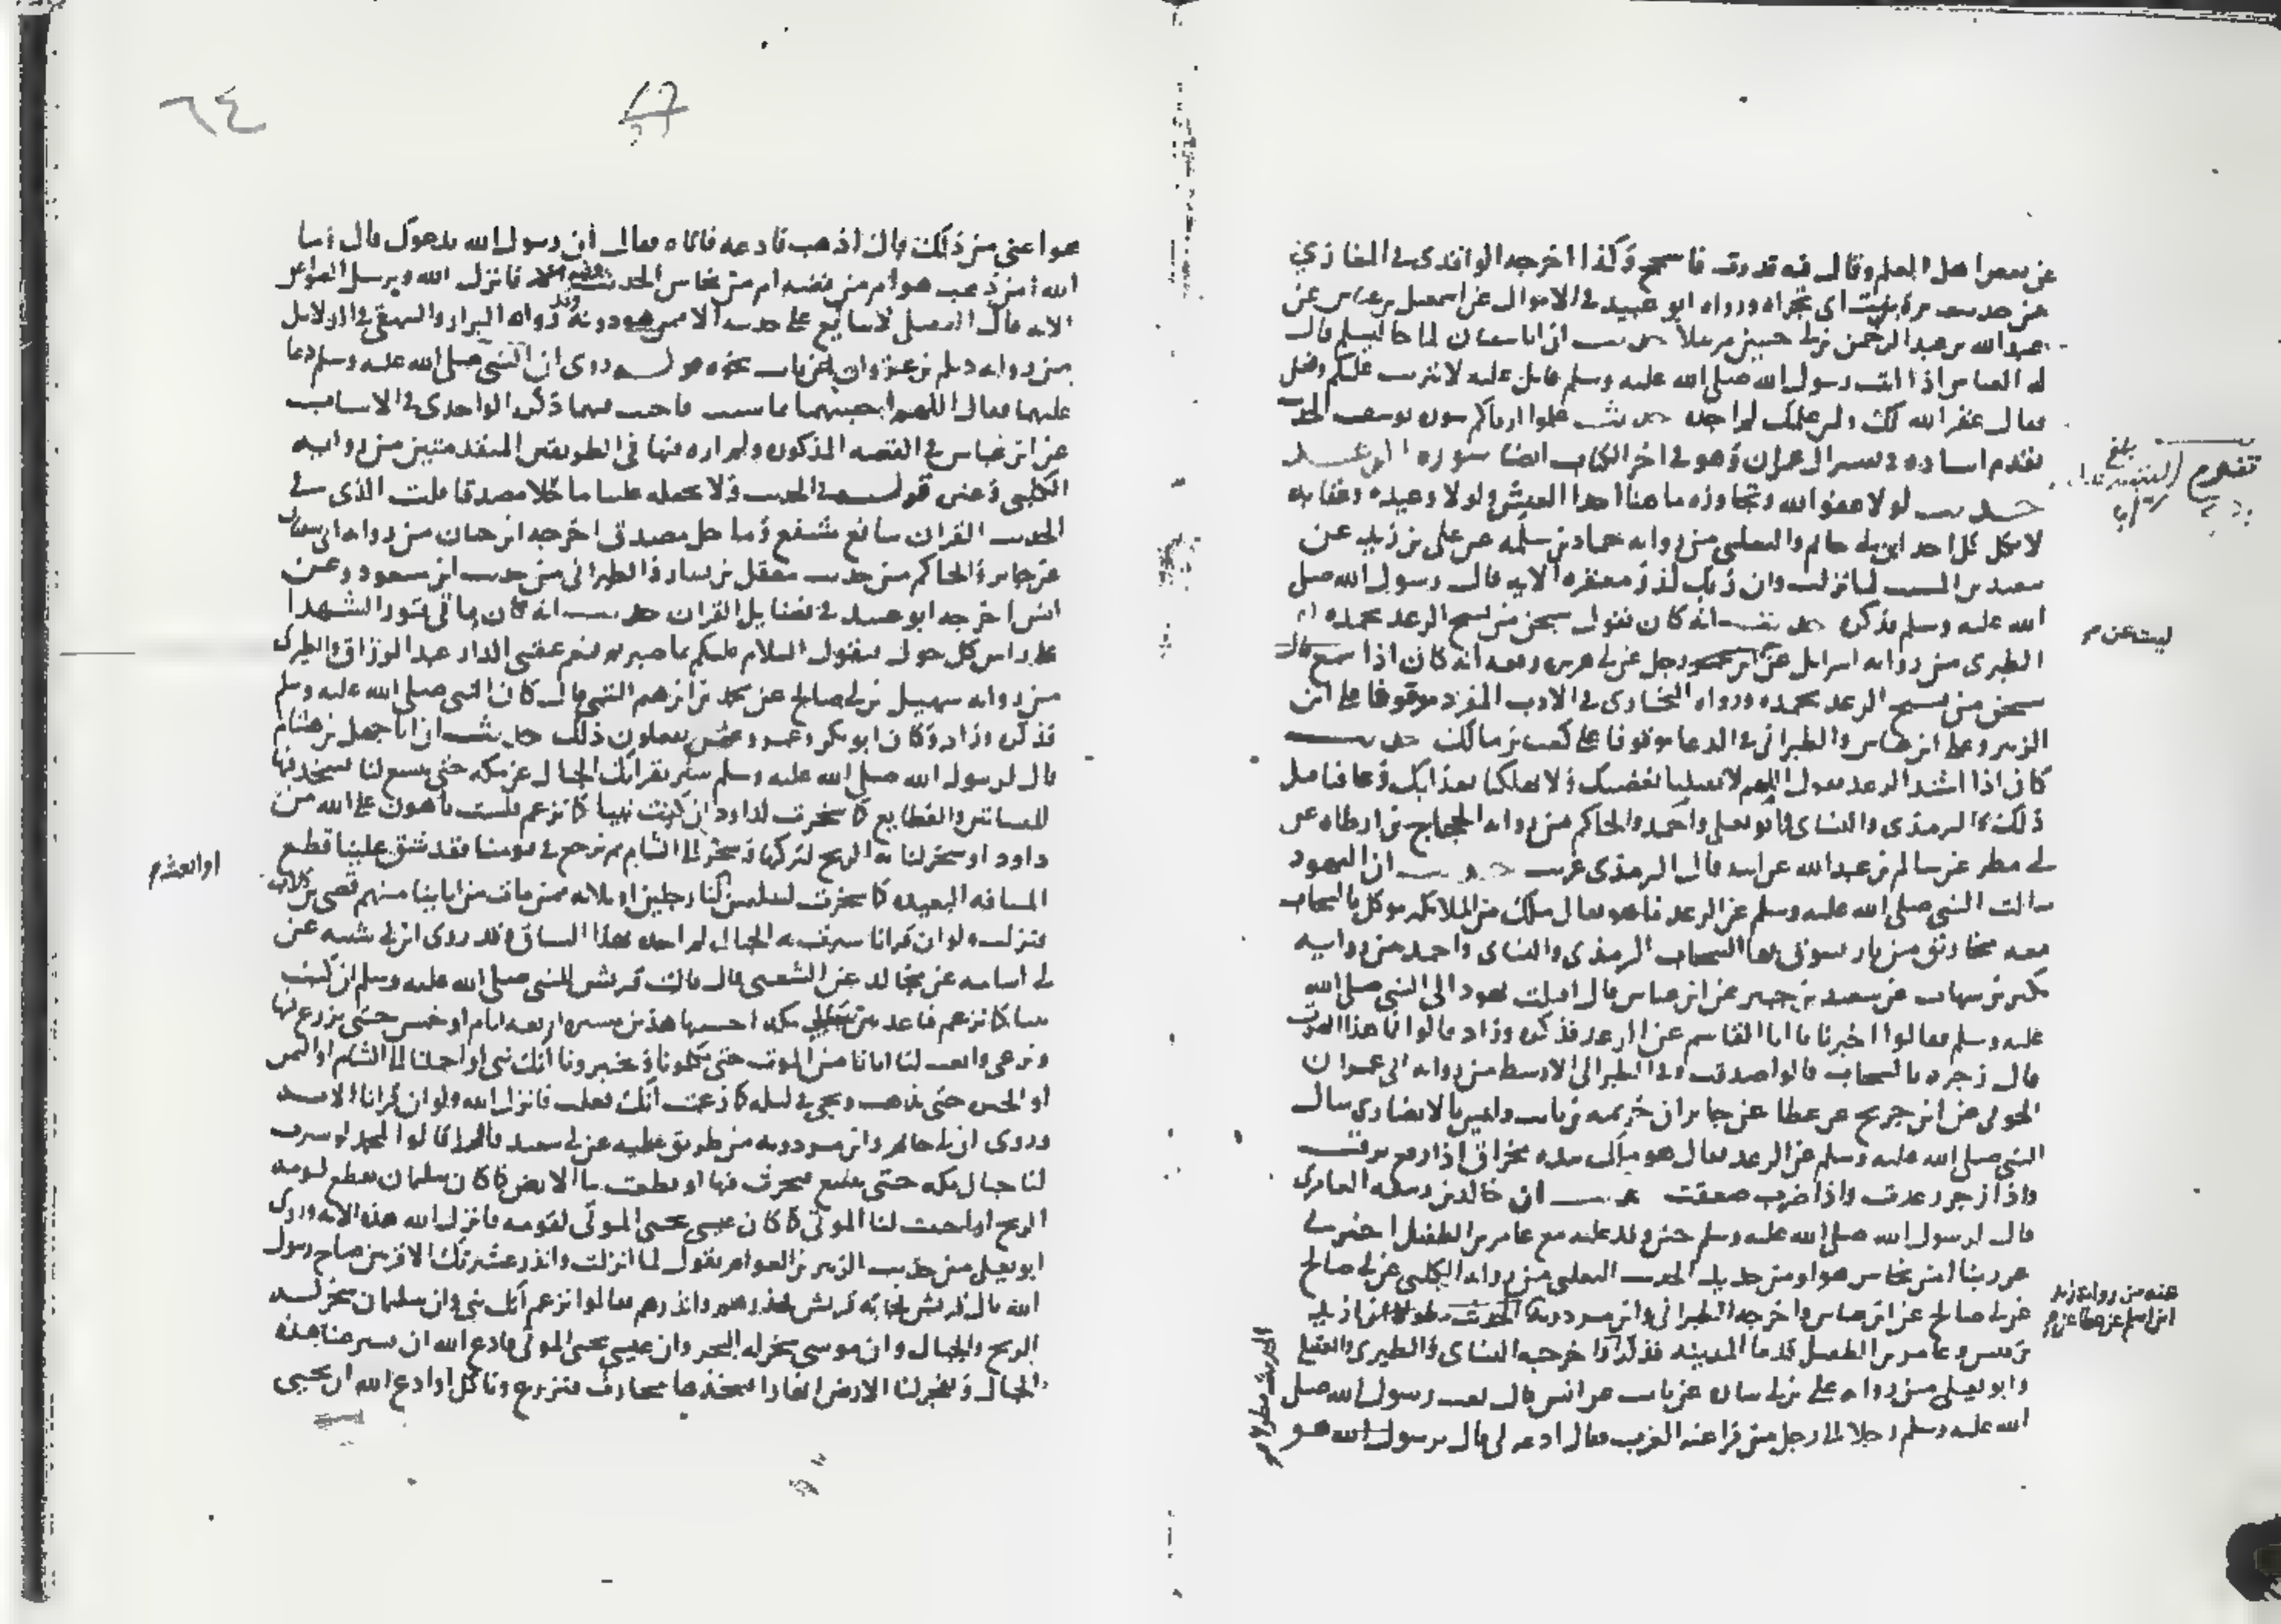 عن بعض اهل العلم وقال فيه قد رق فاسمح وكذا اخرجه الواقدى فى المغازي
من حديث برة بنت ابى تجراه ورواه ابو عبيد فى الاموال عن اسمعيل بن عياش عن
عبد الله بن عبد الرحمن بن ابى حسين مرسلا حديث ان ابا سفيان لما جا ليسلم قال
له العباس اذا اتيت رسول الله صلى الله عليه وسلم فاتل عليه لا تثريب عليكم ففعل
فقال غفر الله لك ولمن علمك لم اجده حديث علموا ارقاكم سورة يوسف الحديث
تقدم اسناده فى تفسير ال عمران وهو فى اخر الكتاب ايضا سورة الرعد
حديث لولا عفو الله وتجاوزه ما هنا احدا العيش ولولا وعيده وعقابه
لاتكل كل احد ابن ابى حاتم والثعلبى من رواية حماد بن سلمه عن على بن زيد عن
سعيد بن المسيب لما نزلت وان ربك لذو مغفرة الايه قال رسول الله صلى
الله عليه وسلم فذكره حديث انه كان يقول سبحن من يسبح الرعد بحمده
الطبرى من رواية اسرايل عن رجل عن ابى هريرة رفعه انه كان اذا سمع الرعد قال
سبحن من يسبح الرعد بحمده ورواه البخارى فى الادب المفرد موقوفا على ابن
الزبير وعلى ابن عباس والطبرانى فى الدعا موقوفا على كعب بن مالك حديث
كان اذا اشتد الرعد يقول اللهم لا تقتلنا بغضبك ولا تهلكنا بعذابك وعافنا قبل
ذلك الترمذى والنساى وابو يعلى واحمد والحاكم من رواية الحجاج بن ارطاه عن
ابى مطر عن سالم بن عبد الله عن ابيه قال الترمذى غريب حديث ان اليهود
سالت النبى صلى الله عليه وسلم عن الرعد ما هو فقال ملك من الملائكة موكل بالسحاب
معه مخاريق من نار يسوق بها السحاب الترمذى والنساى واحمد من رواية
بكير بن شهاب عن سعيد بن جبير عن ابن عباس قال اقبلت يهود الى النبى صلى الله
عليه وسلم فقالوا اخبرنا يا ابا القاسم عن الرعد فذكره وزاد قالوا فما هذا الصوت
قال زجره بالسحاب قالوا صدقت وفى الطبرانى الاوسط من رواية ابى عمران
الجونى عن ابن جريج عن عطا عن جابر ان خزيمه بن ثابت وليس بالانصارى سال
النبى صلى الله عليه وسلم عن الرعد فقال هو ملك بيده مخراق اذا رفع برقت
واذا زجر رعدت واذا ضرب صعقت حديث ان خالد بن ربيعه العامرى
قال لرسول الله صلى الله عليه وسلم حين وفد عليه مع عامر بن الطفيل اخبرنى
عن ربنا امن نحاس هو ام من حديد الحديث الثعلبى من رواية الكلبى عن ابى صالح
عن ابى صالح عن ابن عباس واخرجه الطبرانى وابن مردويه
بن قيس وعامر بن الطفيل قدما المدينه فذكره واخرجه النساى والطبرى والعقيلى
وابو يعلى من رواية على بن ابى سارة عن ثابت عن انس قال بعث رسول الله صلى
الله عليه وسلم رجلا الى رجل من فراعنة العرب فقال ادعه لى قال يرسول الله هو
بلغ
ليث عن م
عنه من رواية زيد
ابن اسلم عن عطا عن م
الحديث مطولا م
٦٤
هو اعتى من ذلك قال اذهب فادعه فاتاه فقال ان رسول الله يدعوك قال اما
الله امن ذهب هو ام من فضه ام من نحاس الحديث فانزل الله ويرسل الصواعق
الايه قال العقيلى لا يتابع على حديثه الا ممن هو دونه وقد رواه البزار والبيهقى فى الدلايل
من رواية ديلم بن غزوان عن ثابت نحوه قوله روى ان النبى صلى الله عليه وسلم دعا
عليهما فقال اللهم احبسهما بما شيت فاجيب فيهما ذكره الواحدى فى الاسباب
عن ابن عباس فى القصه المذكورة ولم اره فيها فى الطريقين المتقدمتين من رواية
الكلبى وعن قوله فى الحديث ولا تجعله علينا ماحلا مصدقا قلت الذى فى
الحديث القران شافع مشفع وماحل مصدق اخرجه ابن حبان من رواية ابى سفيان
عن جابر والحاكم من حديث معقل بن يسار والطبرانى من حديث ابن مسعود وعن
انس اخرجه ابو عبيد فى فضايل القران حديث انه كان ياتى قبور الشهدا
على راس كل حول فيقول السلام عليكم بما صبرتم فنعم عقبى الدار عبد الرزاق والطبرى
من رواية سهيل بن ابى صالح عن محمد بن ابراهيم التيمى قال كان النبى صلى الله عليه وسلم
فذكره وزاد وكان ابو بكر وعمر وعثمن يفعلون ذلك حديث ان ابا جهل بن هشام
قال لرسول الله صلى الله عليه وسلم سير بقرانك الجبال عن مكه حتى يتسع لنا فنتخذ فيها
البساتين والقطايع كما سخرت لداود ان كنت نبيا كما تزعم فلست باهون على الله من
داود او سخر لنا به الريح لنركبها ونتجر الى الشام ثم نرجع فى يومنا فقد شق علينا قطع
المسافه البعيده كما سخرت لسليمن او ابعث لنا رجلين او ثلاثه ممن مات من ابائنا منهم قصى بن كلاب
فنزلت ولو ان قرانا سيرت به الجبال لم اجده بهذا السياق وقد روى ابن ابى شيبه عن
ابى اسامه عن مجالد عن الشعبى قال قالت قريش للنبى صلى الله عليه وسلم ان كنت
نبيا كما تزعم فباعد بين جبلى مكه اخشبيها هذين مسيرة اربعه ايام او خمس حتى نزرع فيها
ونرعى وابعث لنا ابانا من الموتى حتى يكلمونا ويخبرونا انك نبى او احملنا الى الشام او اليمن
او الحيره حتى نذهب ونجى فى ليله كما زعمت انك فعلت فانزل الله ولو ان قرانا الايه
وروى ابن ابى حاتم وابن مردويه من طريق عطيه عن ابى سعيد قالوا لمحمد لو سيرت
لنا جبال مكه حتى تتسع فنحرث فيها او قطعت بنا الارض كما كان سليمان يقطع لقومه
الريح او احييت لنا الموتى كما كان عيسى يحيى الموتى لقومه فانزل الله هذه الايه وروى
ابو يعلى من حديث الزبير بن العوام يقول لما انزلت وانذر عشيرتك الاقربين صاح رسول
الله يال قريش فجاته قريش فحذرهم وانذرهم فقالوا تزعم انك نبى وان سليمان سخر له
الريح والجبال وان موسى سخر له البحر وان عيسى يحيى الموتى فادع الله ان يسير عنا هذه
الجبال ويفجر لنا الارض انهارا فنتخذها محارث فنزرع وناكل او ادع الله ان يحيى